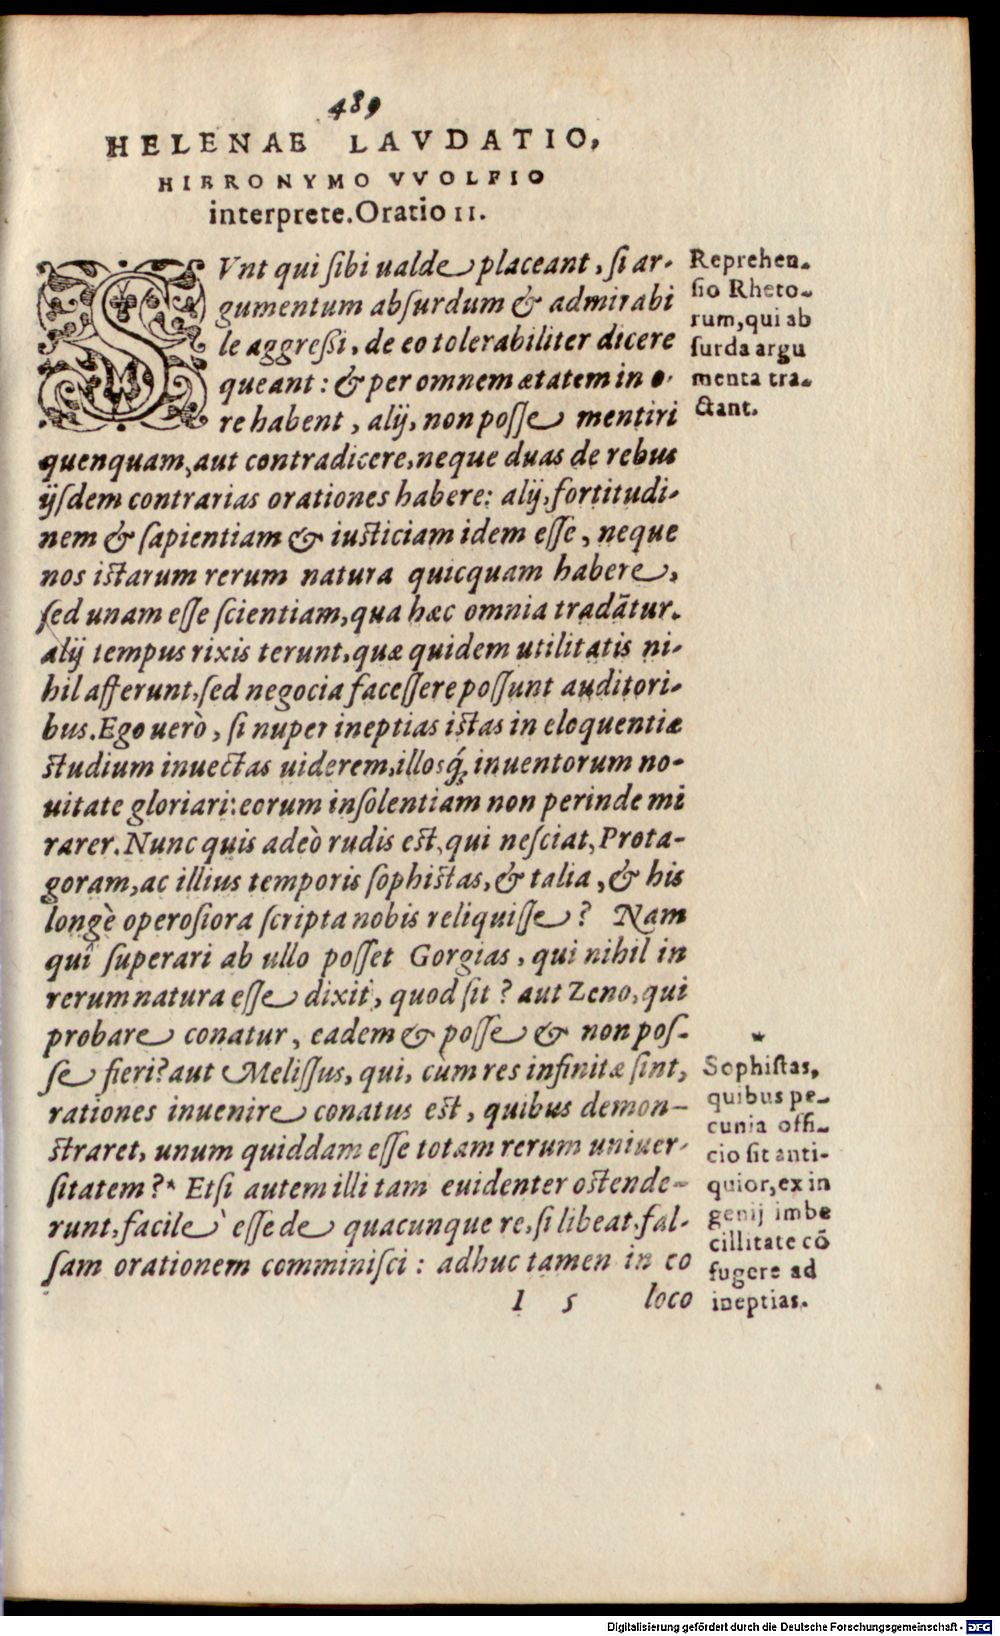 489
HELENAE LAVDATIO,
HIERONYMO VVOLFIO
interprete. Oratio II.
SVnt qui ſibi ualde placeant, ſi ar-
gumentum abſurdum & admirabi
le aggreßi, de eo tolerabiliter dicere
queant: & per omnem ætatem in o-
re habent, alij, non poſſe mentiri
quenquam, aut contradicere, neque duas de rebus
ijſdem contrarias orationes habere: alij, fortitudi-
nem & ſapientiam & iuſticiam idem eſſe, neque
nos iſtarum rerum natura quicquam habere,
ſed unam eſſe ſcientiam, qua hæc omnia tradãtur.
alij tempus rixis terunt, quæ quidem utilitatis ni-
hil afferunt, ſed negocia faceſſere poſſunt auditori-
bus. Ego uerò, ſi nuper ineptias iſtas in eloquentiæ
ſtudium inuectas uiderem, illosq́; inuentorum no-
uitate gloriari: eorum inſolentiam non perinde mi
rarer. Nunc quis adeò rudis eſt, qui neſciat, Prota-
goram, ac illius temporis ſophiſtas, & talia, & his
longè operoſiora ſcripta nobis reliquiſſe? Nam
quî ſuperari ab ullo poſſet Gorgias, qui nihil in
rerum natura eſſe dixit, quod ſit? aut Zeno, qui
probare conatur, eadem & poſſe & non poſ-
ſe fieri? aut Meliſſus, qui, cùm res infinitæ ſint,
rationes inuenire conatus eſt, quibus demon-
ſtraret, unum quiddam eſſe totam rerum uniuer-
ſitatem?* Etſi autem illi tam euidenter oſtende-
runt, facilè eſſe de quacunque re, ſi libeat, fal-
ſam orationem comminiſci: adhuc tamen in eo
l 5 loco
Reprehen-
ſio Rheto-
rum, qui ab
ſurda argu
menta tra-
ctant.
*
Sophiſtas,
quibus pe-
cunia offi-
cio ſit anti-
quior, ex in
genij imbe
cillitate cõ
fugere ad
ineptias.
Digitalisierung gefördert durch die Deutsche Forschungsgemeinschaft - DFG